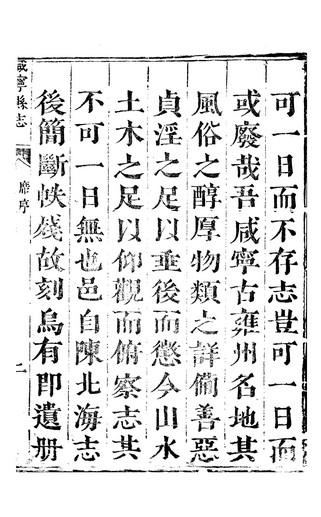 可一日而不存志豈可一日而
或廢哉吾咸寧古雍州名地其
風俗之醇厚物類之詳僃善惡
貞淫之足以垂後而懲今山水
土木之足以仰觀而俯察志其
不可一日無也邑自陳北海志
後簡斷帙殘故刻烏有即遺册
咸寧縣志
序
二